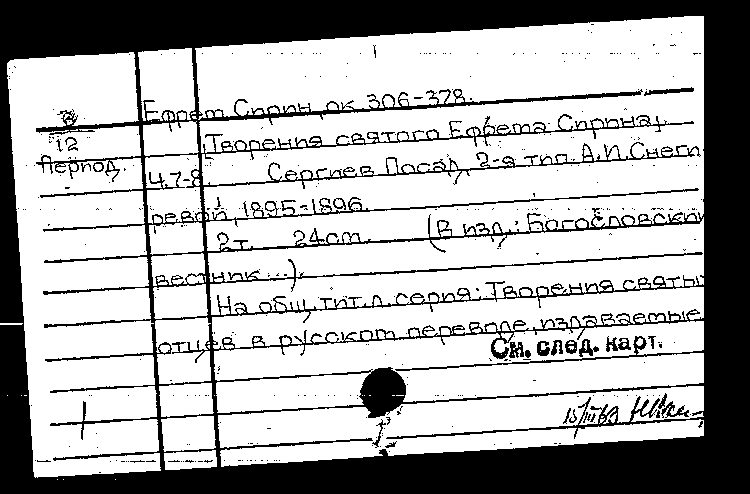 3
12
Период.
Ефрем Сирин, ок 306-378.
Творения святого Ефрема Сирина,.
Ч.7-8. Сергиев Посад, 2-я тип. А.И. Снеги
ревой, 1895-1896.
2т. 24cm. (В изд.: Богословский
вестник...).
На общ. тит. л. серия: Творения святы
отцев в русском переводе, издаваемые
См. след. карт.
1